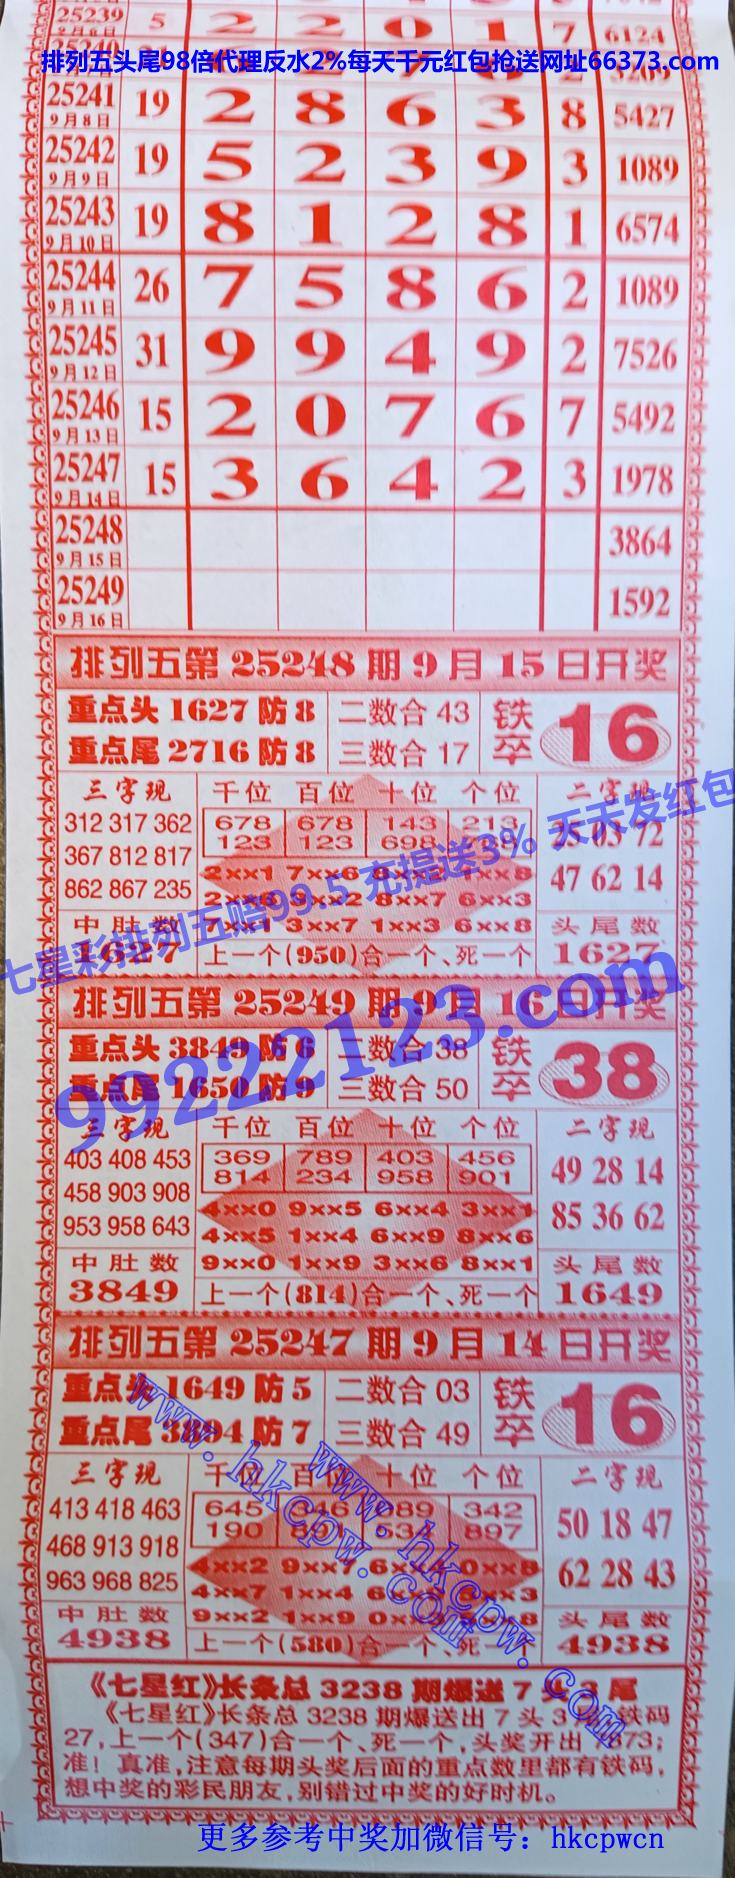 25239 5 2 2 0 1 7 6124
9月6日
排列五头尾98倍代理反水2%每天千元红包抢送网址66373.com
25241 19 2 8 6 3 8 5427
9月8日
25242 19 5 2 3 9 3 1089
9月9日
25243 19 8 1 2 8 1 6574
9月10日
25244 26 7 5 8 6 2 1089
9月11日
25245 31 9 9 4 9 2 7526
9月12日
25246 15 2 0 7 6 7 5492
9月13日
25247 15 3 6 4 2 3 1978
9月14日
25248 3864
9月15日
25249 1592
9月16日
排列五第25248期9月15日开奖
重点头1627防8 二数合43 铁卒 16
重点尾2716防8 三数合17
三字现 千位 百位 十位 个位 二字现
312 317 362 678 678 143 213 25 03 72
367 812 817 123 123 698
七星彩排列五赔99.5 充提送3% 天天发红包
862 867 235 2xx1 7xx6 47 62 14
8xx7 6xx3
中肚数 7xx1 3xx7 1xx3 6xx8 头尾数
1627 上一个(950)合一个、死一个 1627
排列五第25249期9月16日开奖
99222123.com
重点头3849防6 二数合38 铁卒 38
重点尾1650防9 三数合50
三字现 千位 百位 十位 个位 二字现
403 408 453 369 789 403 456 49 28 14
458 903 908 814 234 958 901 85 36 62
953 958 643 4xx0 9xx5 6xx4 3xx1
4xx5 1xx4 6xx9 8xx6
中肚数 9xx0 1xx9 3xx6 8xx1 头尾数
3849 上一个(814)合一个、死一个 1649
排列五第25247期9月14日开奖
重点头1649防5 二数合03 铁卒 16
重点尾3894防7 三数合49
www.hkcpw.com
www.hkcpw.com
三字现 千位 百位 十位 个位 二字现
413 418 463 645 342 50 18 47
468 913 918 190 897 62 28 43
963 968 825 4xx2
4xx7 1xx4
中肚数 9xx2 1xx9 头尾数
4938 上一个(580)合一个、死一个 4938
《七星红》长条总3238期爆送7头3尾
《七星红》长条总3238期爆送出7头3尾,铁码
27,上一个(347)合一个、死一个,头奖开出7873;
准！真准,注意每期头奖后面的重点数里都有铁码,
想中奖的彩民朋友,别错过中奖的好时机。
更多参考中奖加微信号：hkcpwcn